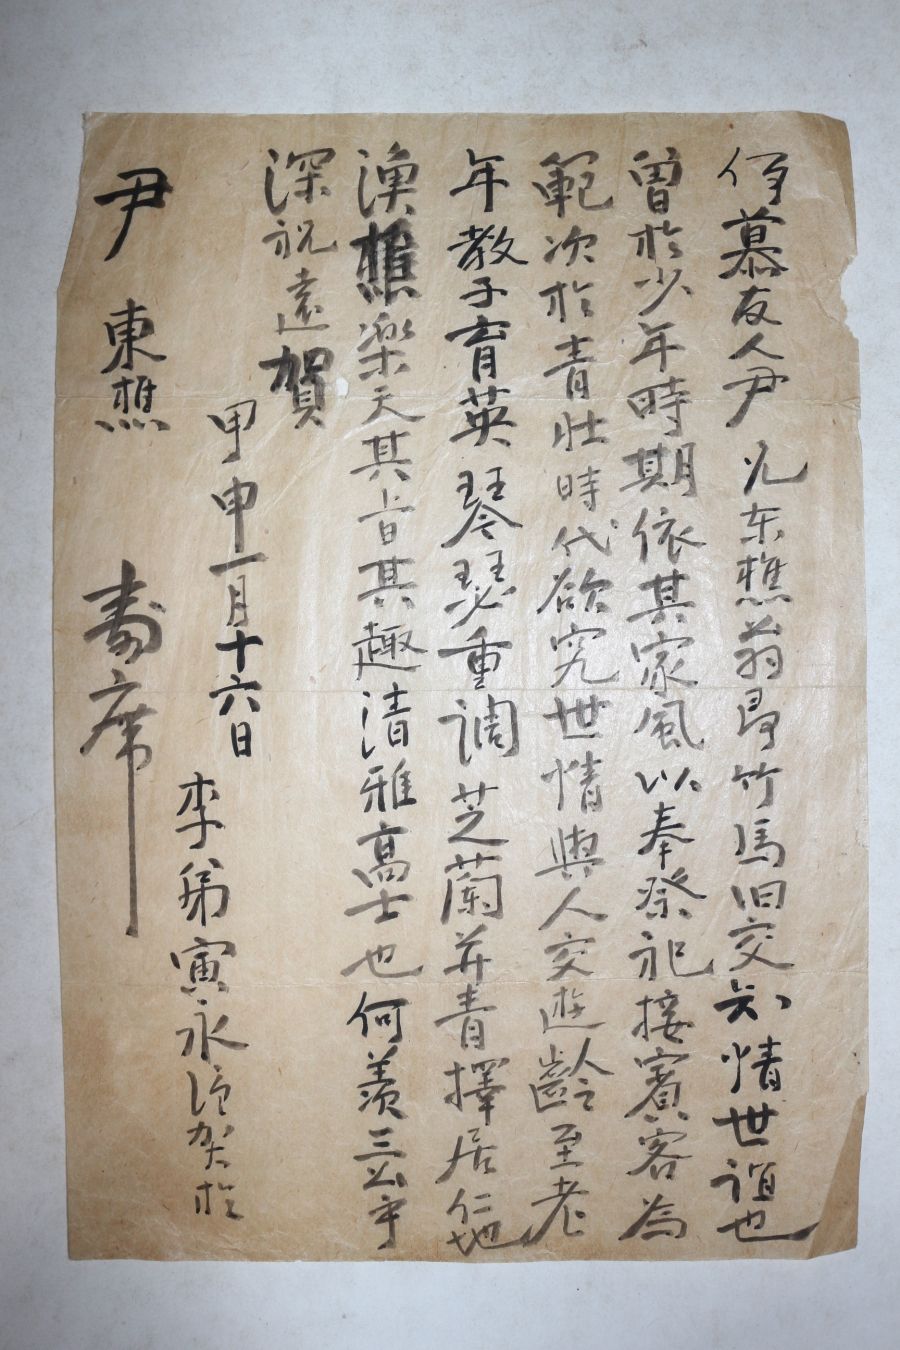 慕友人尹兄东樵翁尋竹馬旧交知情世誼也
曾於少年時期依其家風以奉祭祀接賓客為
範次於青壯時代欲究世情與人交遊齡至老
年教子育英琴瑟重調芝蘭并青擇居仁地
漁樵楽天其旨其趣清雅高士也何羨三公乎
深祝遠賀
甲申一月十六日
李弟寅永謹賀於
尹東樵壽席